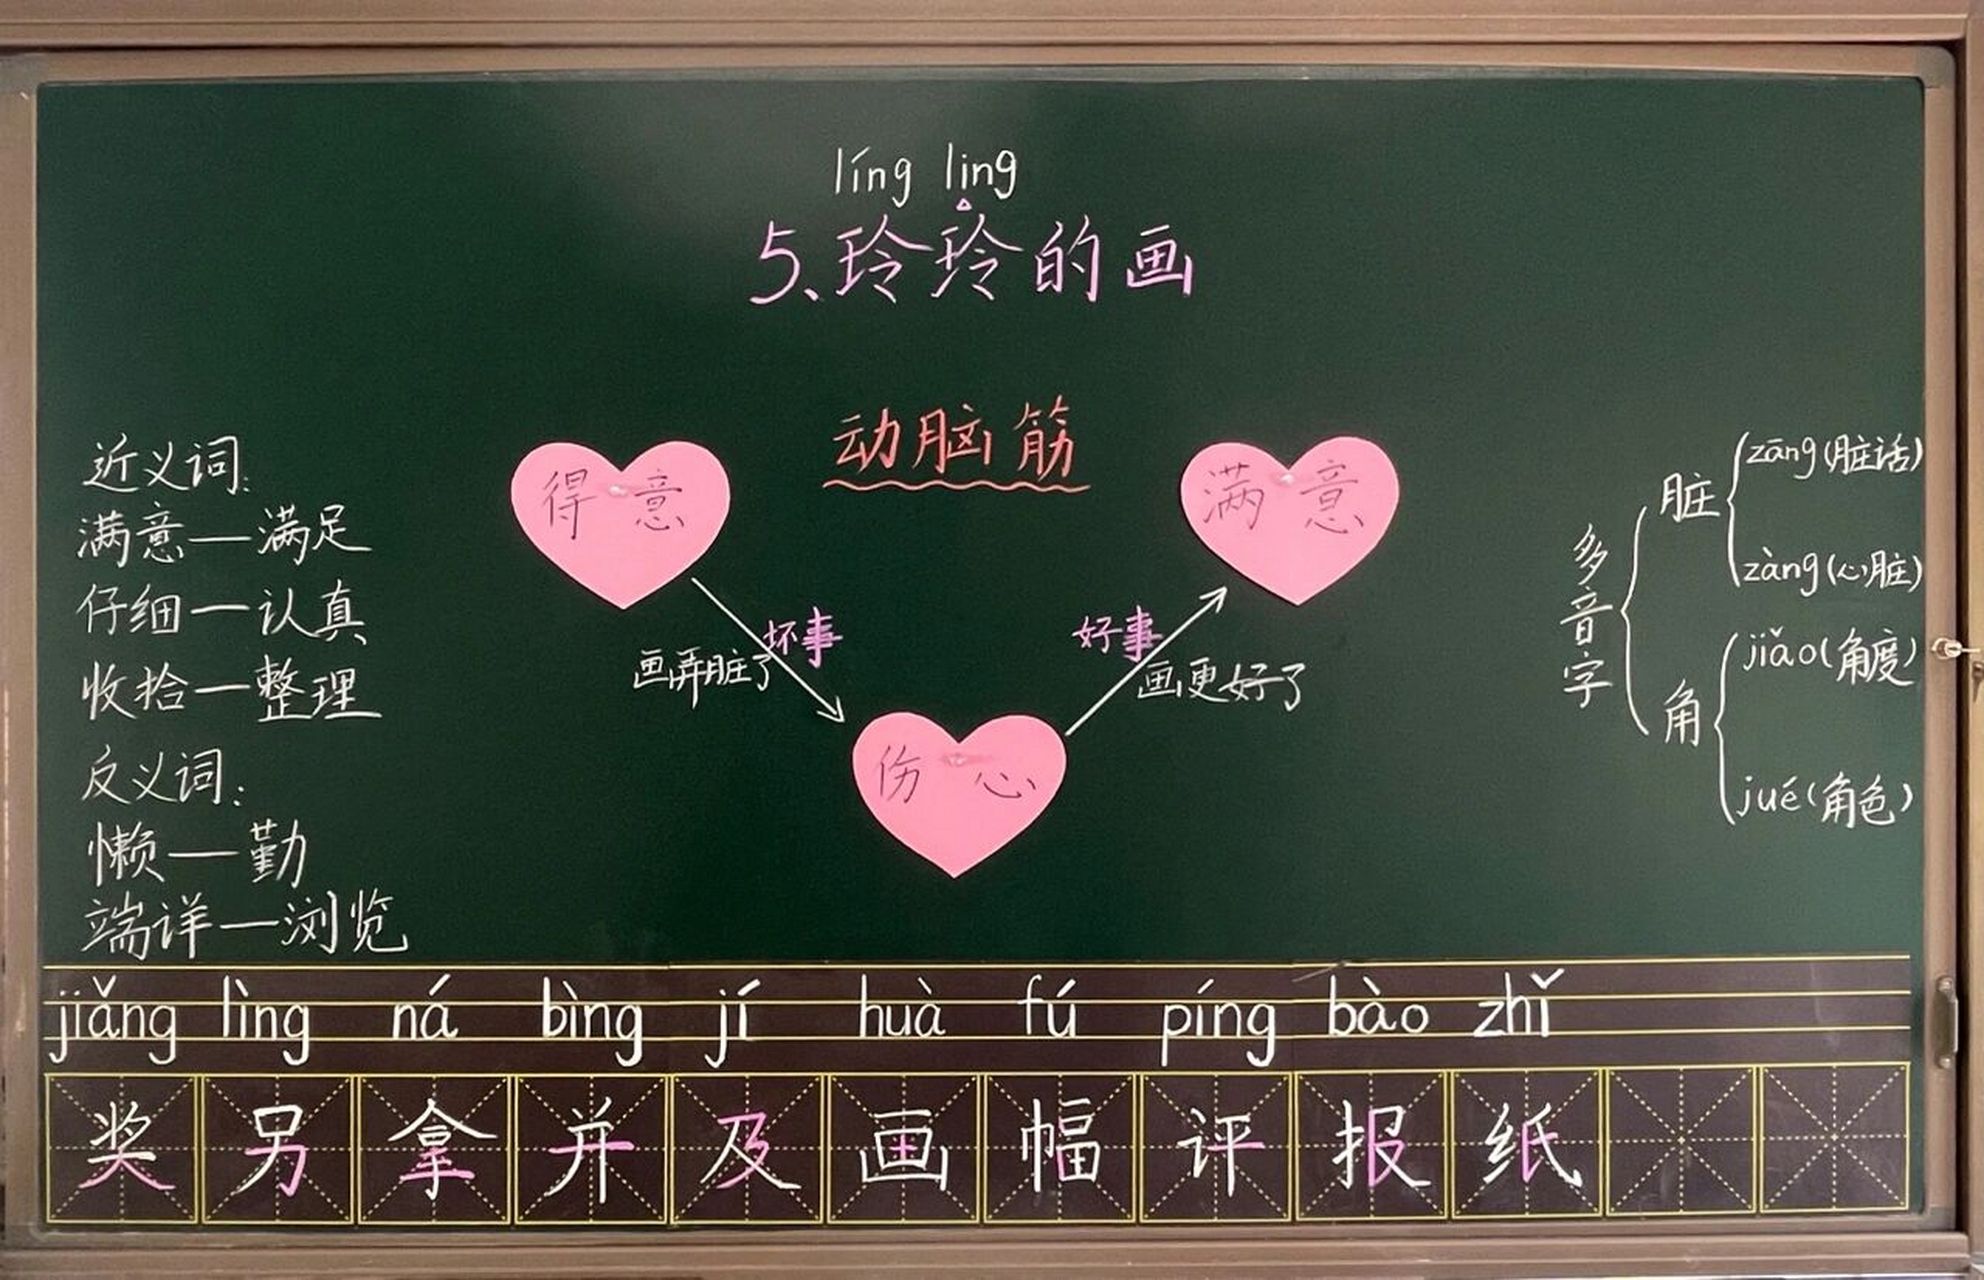 líng ling
5、玲玲的画
动脑筋
近义词:
满意—满足
仔细—认真
收拾—整理
反义词:
懒—勤
端详—浏览
得意
坏事
画弄脏了
伤心
好事
画更好了
满意
多音字
脏
zāng(脏话)
zàng(心脏)
角
jiǎo(角度)
jué(角色)
jiǎng lìng ná bìng jí huà fú píng bào zhǐ
奖 另 拿 并 及 画 幅 评 报 纸